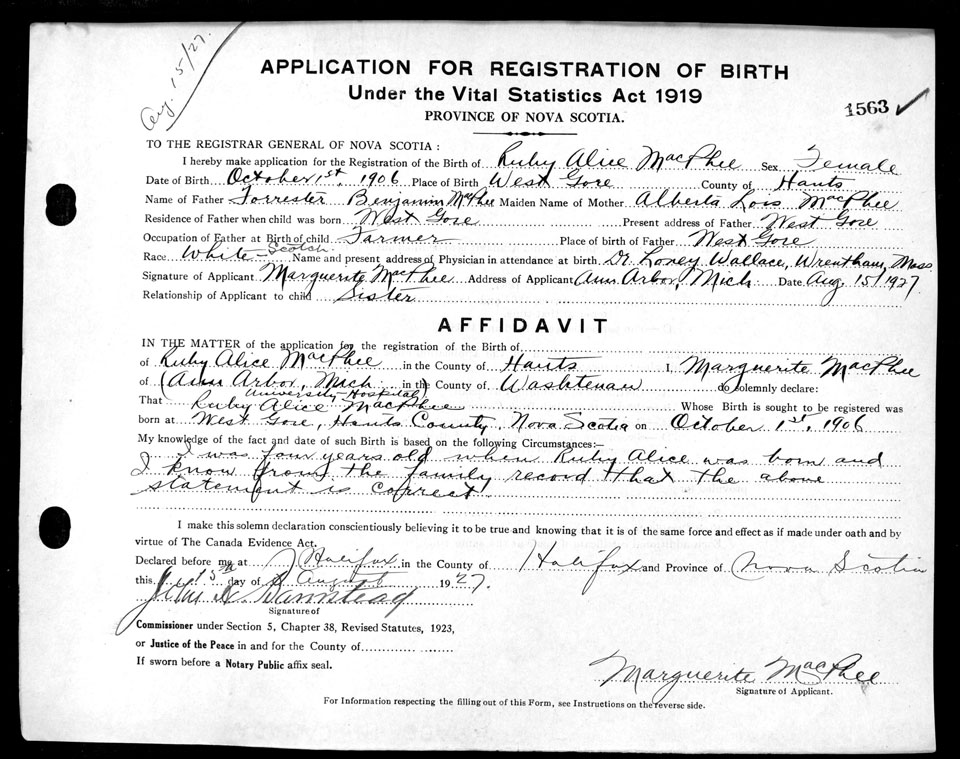 Aug. 15/27.
APPLICATION FOR REGISTRATION OF BIRTH
Under the Vital Statistics Act 1919
PROVINCE OF NOVA SCOTIA.
1563 ✓
TO THE REGISTRAR GENERAL OF NOVA SCOTIA :
I hereby make application for the Registration of the Birth of Ruby Alice MacPhee Sex Female
Date of Birth October 1st, 1906 Place of Birth West Gore County of Hants
Name of Father Forrester Benjamin MacPhee Maiden Name of Mother Alberta Lois MacPhee
Residence of Father when child was born West Gore Present address of Father West Gore
Occupation of Father at Birth of child Farmer Place of birth of Father West Gore
Race White-Scotch Name and present address of Physician in attendance at birth. Dr. Wallace, Wrentham, Mass
Signature of Applicant Marguerite MacPhee Address of Applicant Ann Arbor, Mich. Date Aug. 15/1927.
Relationship of Applicant to child Sister
AFFIDAVIT
IN THE MATTER of the application for the registration of the Birth of
of Ruby Alice MacPhee in the County of Hants I, Marguerite MacPhee
of (Ann Arbor, Mich. in the County of Washtenaw do solemnly declare:
University-Hospital)
That Ruby Alice MacPhee Whose Birth is sought to be registered was
born at West Gore, Hants County, Nova Scotia on October 1st, 1906
My knowledge of the fact and date of such Birth is based on the following Circumstances:—
I was four years old when Ruby Alice was born and
I know from the family record that the above
statement is correct.
I make this solemn declaration conscientiously believing it to be true and knowing that it is of the same force and effect as if made under oath and by
virtue of The Canada Evidence Act.
Declared before me at Halifax in the County of Halifax and Province of Nova Scotia
this 15th day of August 1927.
Signature of
Commissioner under Section 5, Chapter 38, Revised Statutes, 1923,
or Justice of the Peace in and for the County of
If sworn before a Notary Public affix seal.
Marguerite MacPhee
Signature of Applicant.
For Information respecting the filling out of this Form, see Instructions on the reverse side.